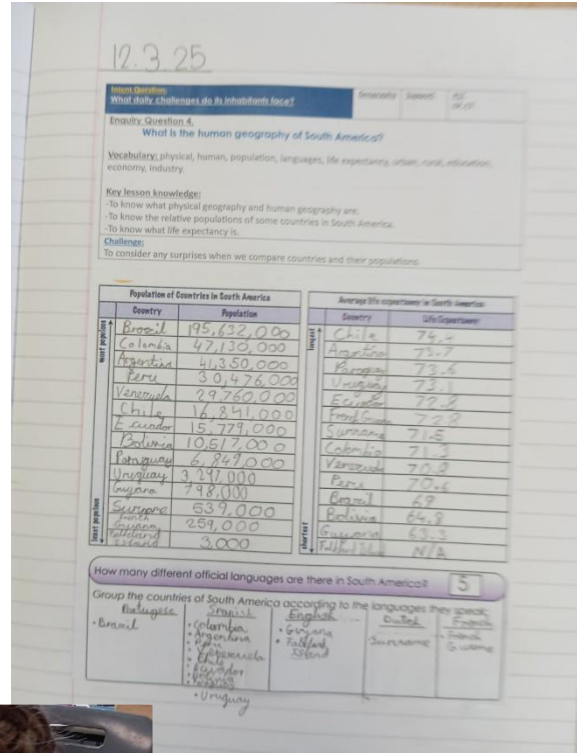 12.3.25
Intent Question:
What daily challenges do its inhabitants face?
Geography Support
Enquiry Question 4.
What is the human geography of South America?
Vocabulary: physical, human, population, languages, life expectancy, urban, rural, education,
economy, industry.
Key lesson knowledge:
-To know what physical geography and human geography are.
-To know the relative populations of some countries in South America.
-To know what life expectancy is.
Challenge:
To consider any surprises when we compare countries and their populations.
Population of Countries in South America
Country Population
most populous
Brazil 195,632,000
Colambia 47,130,000
Argentina 41,350,000
Peru 30,476,000
Venezuela 29,760,000
Chile 16,841,000
Ecuador 15,779,000
Bolivia 10,517,000
Paraguay 6,849,000
Uruguay 3,297,000
Guyana 798,000
539,000
French 259,000
Falkland Island 3,000
least populous
Average life expectancy in South America
Country Life Expectancy
longest
Chile
Argentina 75.7
Paraguay 73.6
Uruguay 73.1
Ecuador 72.8
French 72.8
Suriname 71.5
Colombia 71.3
Venezuela 70.8
Peru 70.6
Brazil 69
Bolivia 64.8
Guyana 63.3
N/A
shortest
How many different official languages are there in South America? 5
Group the countries of South America according to the languages they speak:
Portugese Spanish English Dutch French
• Brazil
• Colambia
• Argentina
• Peru
• Venezuela
• Chile
• Ecuador
• Uruguay
• Guyana
• Falkland
Island
Suriname
French